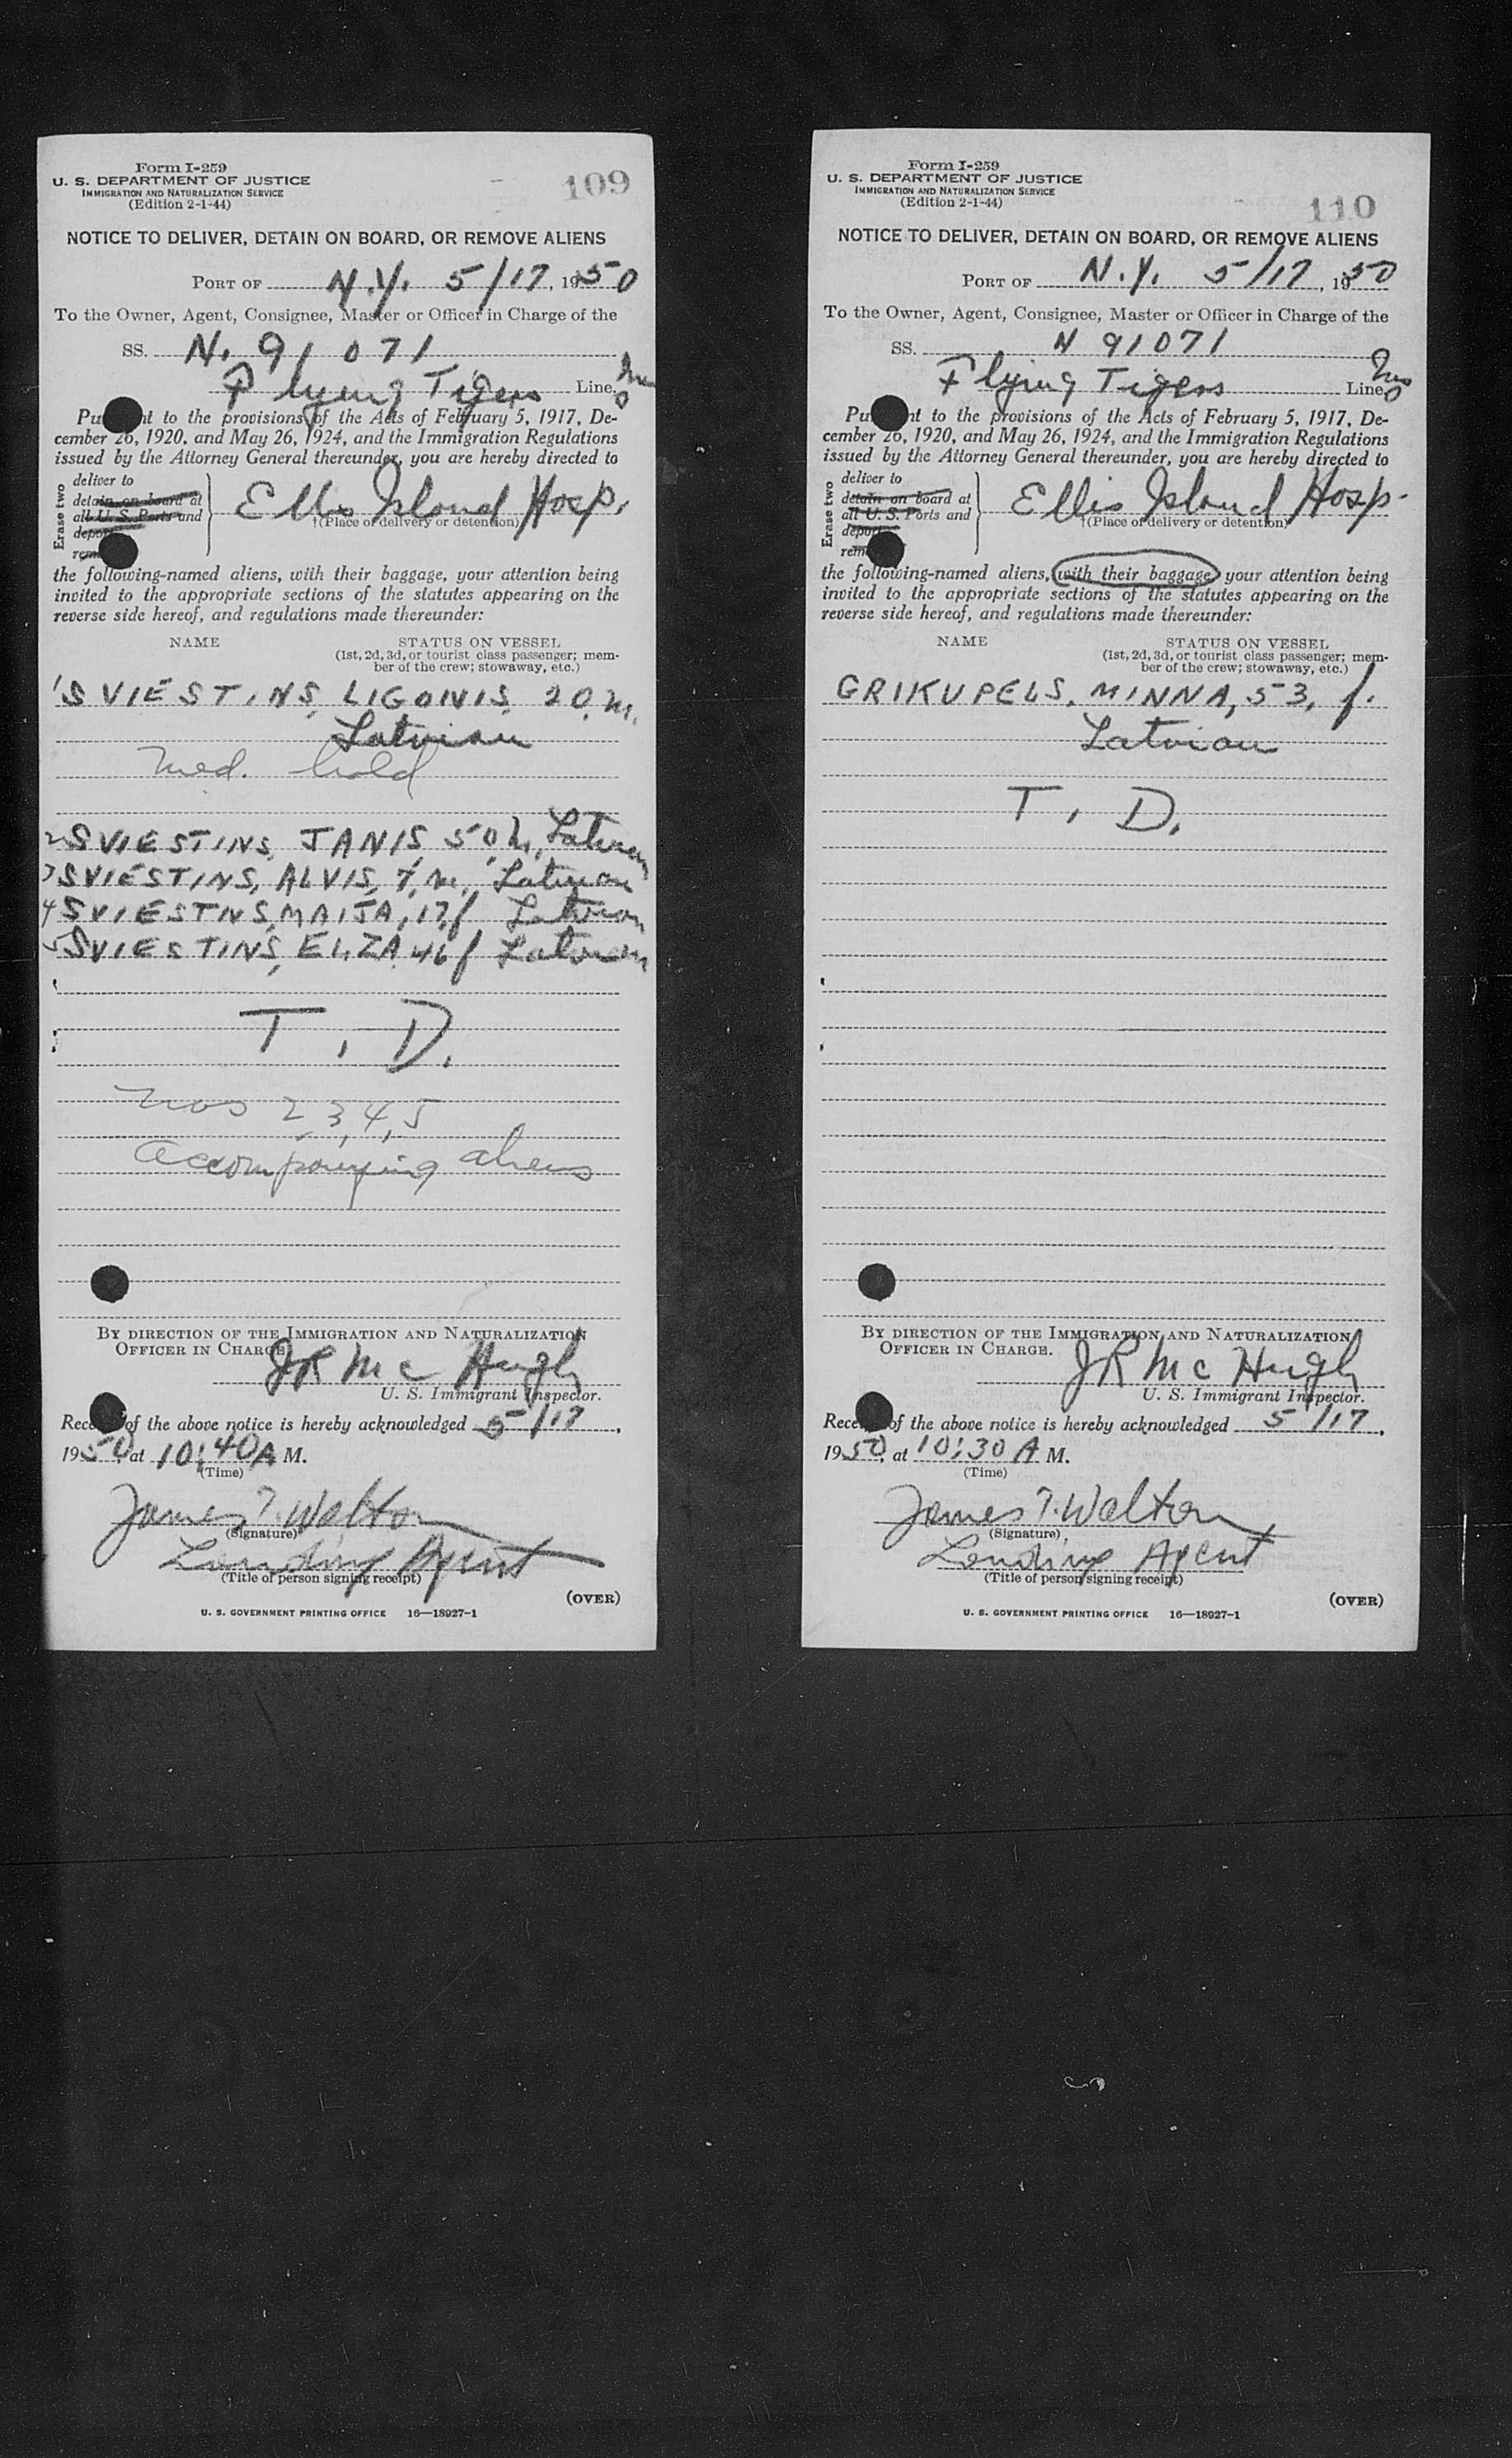 Form I-259
U. S. DEPARTMENT OF JUSTICE
IMMIGRATION AND NATURALIZATION SERVICE
(Edition 2-1-44)
109
NOTICE TO DELIVER, DETAIN ON BOARD, OR REMOVE ALIENS
PORT OF N.Y. 5/17, 1950
To the Owner, Agent, Consignee, Master or Officer in Charge of the
SS. N. 91071
Flying Tigers Line,
Pu nt to the provisions of the Acts of February 5, 1917, De-
cember 26, 1920, and May 26, 1924, and the Immigration Regulations
issued by the Attorney General thereunder, you are hereby directed to
Erase two
deliver to
detain on board at
all U. S. Ports and
deport
rem
Ellis Island Hosp.
†(Place of delivery or detention)
the following-named aliens, with their baggage, your attention being
invited to the appropriate sections of the statutes appearing on the
reverse side hereof, and regulations made thereunder:
NAME STATUS ON VESSEL
(1st, 2d, 3d, or tourist class passenger; mem-
ber of the crew; stowaway, etc.)
1 SVIESTINS, LIGONIS, 20, m.
Latvian
Med. hold
2 SVIESTINS, JANIS 50, m, Latvian
3 SVIESTINS, ALVIS, m., Latvian
4 SVIESTINS, MAIJA, 17, f Latvian
5 SVIESTINS, ELIZA 46 f Latvian
T. D.
Nos 2, 3, 4, 5
accompanying aliens
BY DIRECTION OF THE IMMIGRATION AND NATURALIZATION
OFFICER IN CHARGE
JR McHugh
U. S. Immigrant Inspector.
Rece of the above notice is hereby acknowledged 5/17,
1950 at 10:40 A M.
(Time)
James T. Walton
(Signature)
Landing Agent
(Title of person signing receipt)
(OVER)
U. S. GOVERNMENT PRINTING OFFICE 16—18927-1
Form I-259
U. S. DEPARTMENT OF JUSTICE
IMMIGRATION AND NATURALIZATION SERVICE
(Edition 2-1-44)
110
NOTICE TO DELIVER, DETAIN ON BOARD, OR REMOVE ALIENS
PORT OF N.Y. 5/17, 1950
To the Owner, Agent, Consignee, Master or Officer in Charge of the
SS. N 91071
Flying Tigers Line,
Pu nt to the provisions of the Acts of February 5, 1917, De-
cember 26, 1920, and May 26, 1924, and the Immigration Regulations
issued by the Attorney General thereunder, you are hereby directed to
Erase two
deliver to
detain on board at
all U. S. Ports and
deport
rem
Ellis Island Hosp.
†(Place of delivery or detention)
the following-named aliens, with their baggage, your attention being
invited to the appropriate sections of the statutes appearing on the
reverse side hereof, and regulations made thereunder:
NAME STATUS ON VESSEL
(1st, 2d, 3d, or tourist class passenger; mem-
ber of the crew; stowaway, etc.)
GRIKUPELS, MINNA, 53, f.
Latvian
T. D.
BY DIRECTION OF THE IMMIGRATION AND NATURALIZATION
OFFICER IN CHARGE.
JR McHugh
U. S. Immigrant Inspector.
Rece of the above notice is hereby acknowledged 5/17,
1950, at 10:30 A M.
(Time)
James T. Walton
(Signature)
Landing Agent
(Title of person signing receipt)
(OVER)
U. S. GOVERNMENT PRINTING OFFICE 16—18927-1